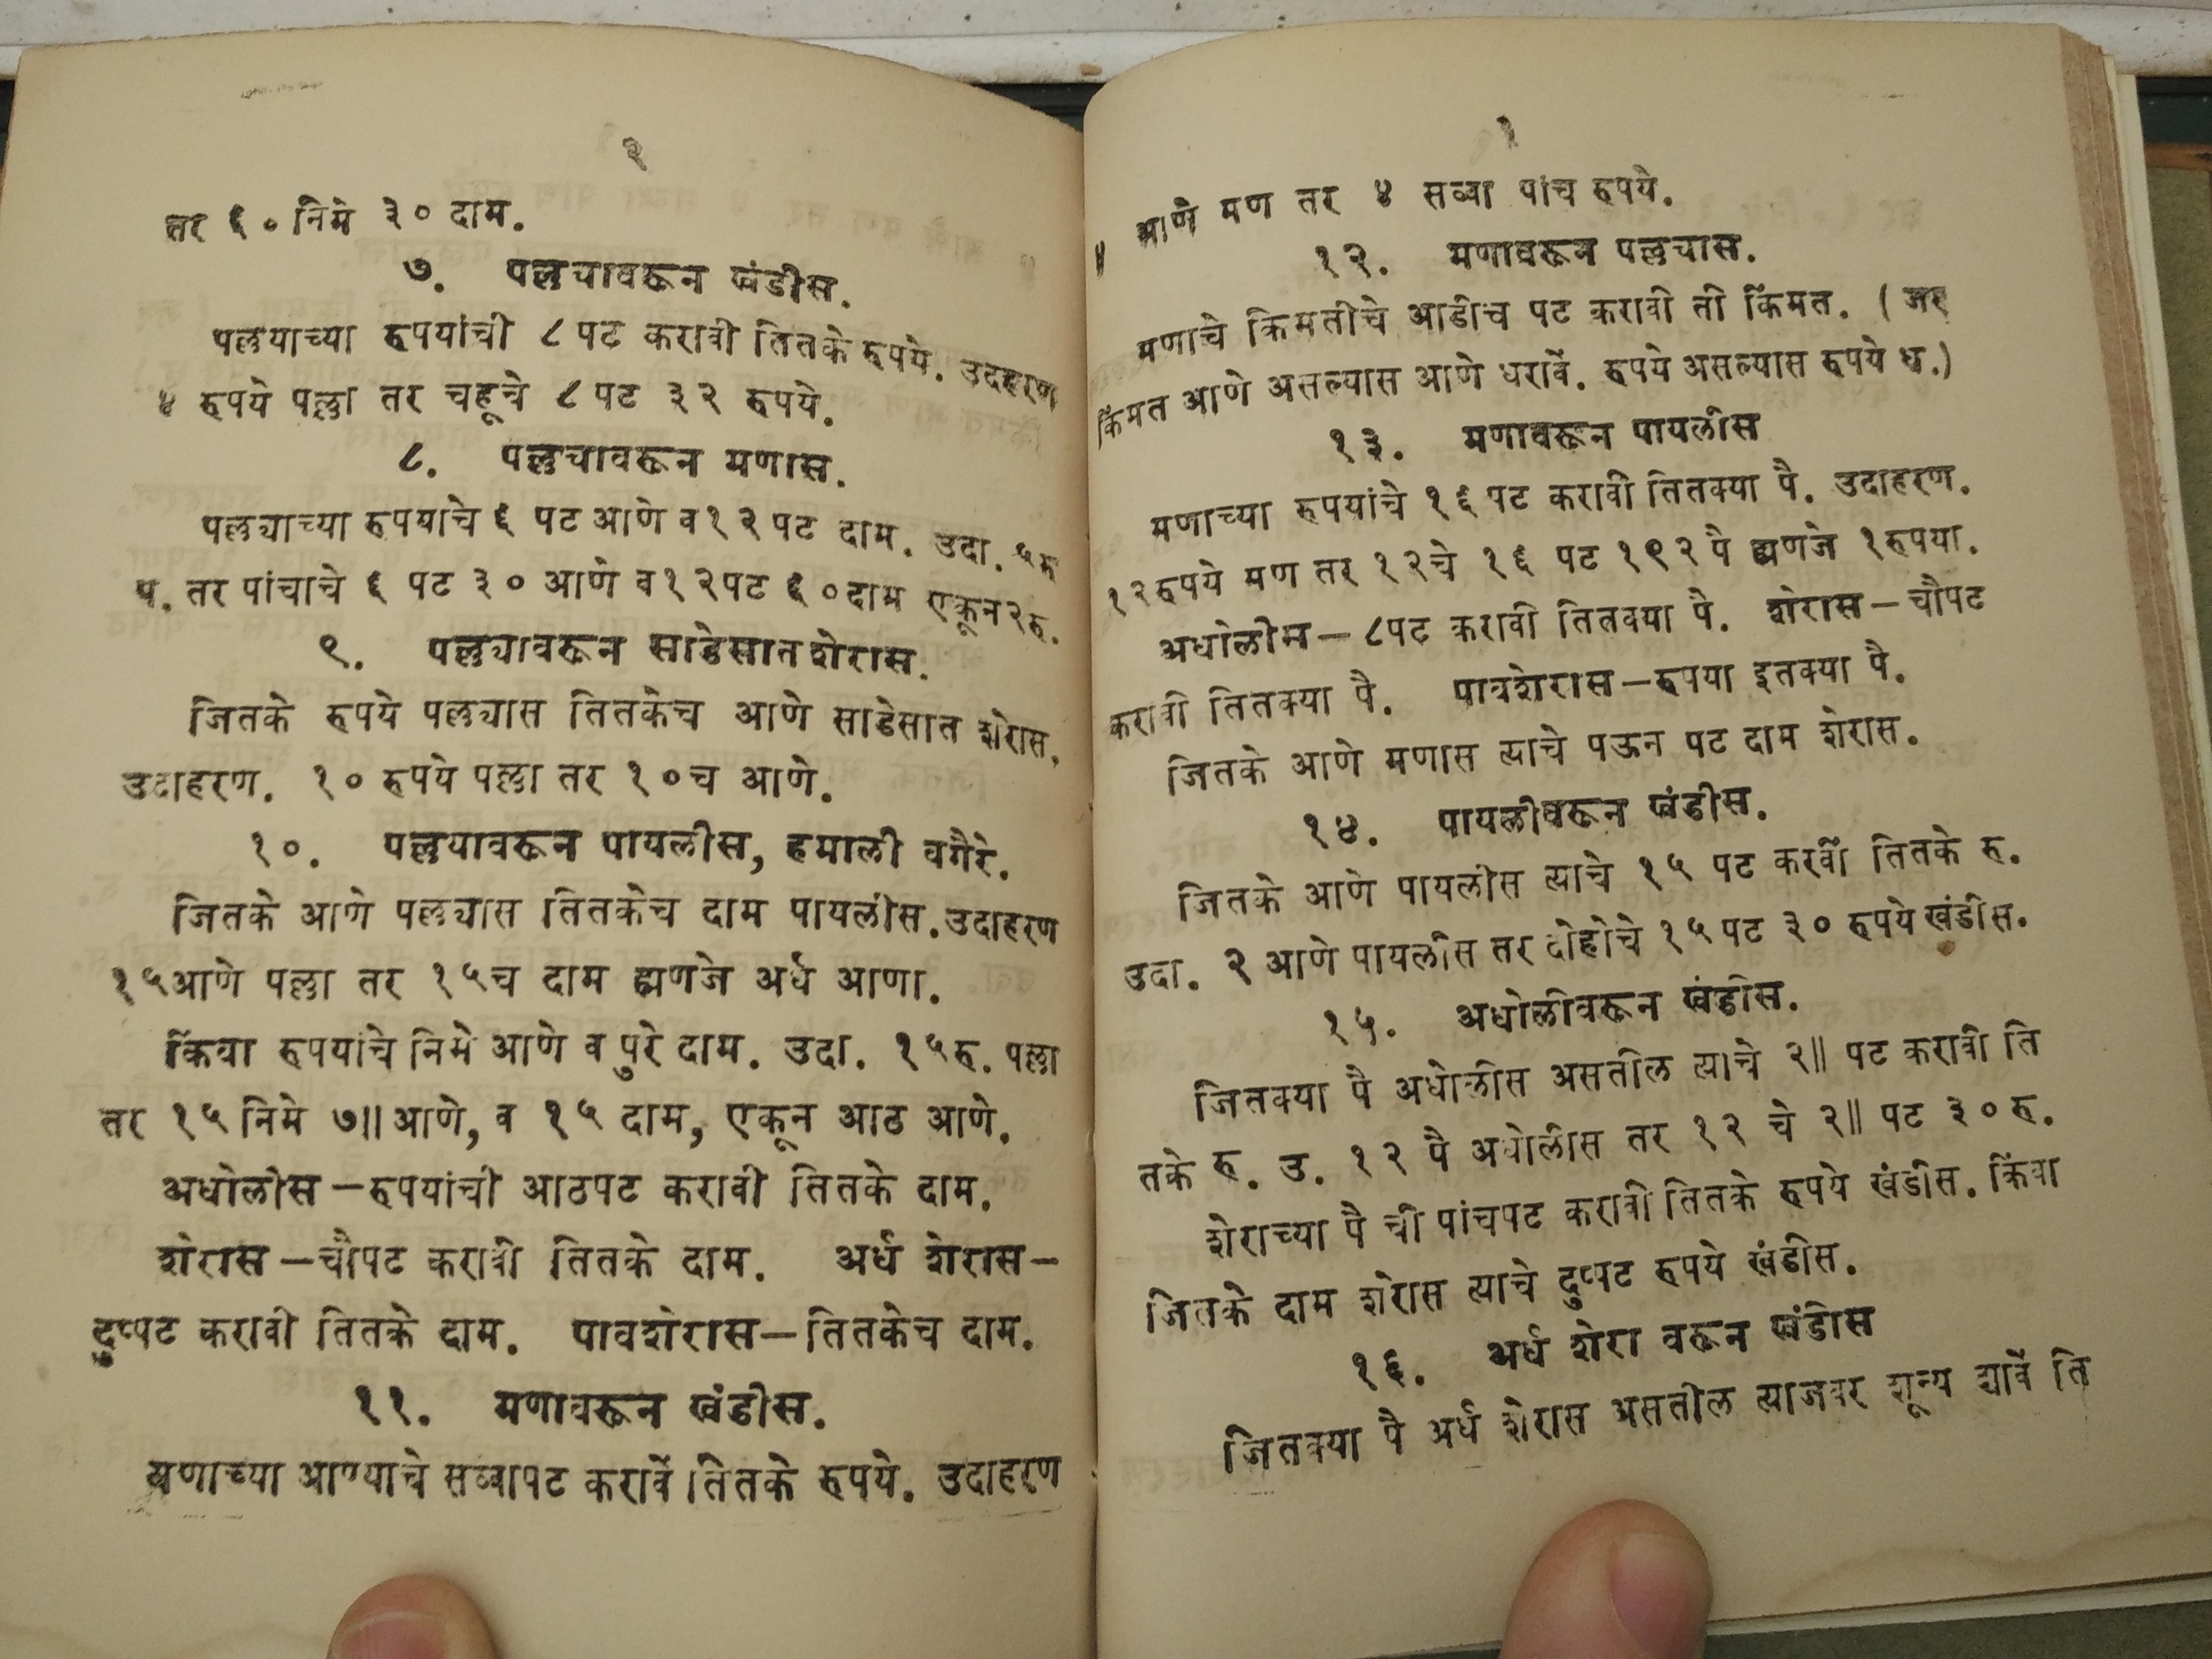 २
तर ६० निमे ३० दाम.
७. पल्लयावरून खंडीस.
पल्लयाच्या रुपयांची ८ पट करावी तितके रुपये. उदहरण
४ रुपये पल्ला तर चहूचे ८ पट ३२ रुपये.
८. पल्लयावरून मणास.
पल्लयाच्या रुपयाचे ६ पट आणे व १२ पट दाम. उदा. ५ रु
प. तर पांचाचे ६ पट ३० आणे व १२ पट ६० दाम एकून २ रु.
९. पल्लयावरून साडेसात शेरास.
जितके रुपये पल्लयास तितकेच आणे साडेसात शेरास.
उदाहरण. १० रुपये पल्ला तर १० च आणे.
१०. पल्लयावरून पायलीस, हमाली वगैरे.
जितके आणे पल्लयास तितकेच दाम पायलीस. उदाहरण
१५ आणे पल्ला तर १५ च दाम ह्मणजे अर्ध आणा.
किंवा रुपयांचे निमे आणे व पुरे दाम. उदा. १५ रु. पल्ला
तर १५ निमे ७॥ आणे, व १५ दाम, एकून आठ आणे.
अधोलीस – रुपयांची आठपट करावी तितके दाम.
शेरास – चौपट करावी तितके दाम. अर्ध शेरास –
दुप्पट करावी तितके दाम. पावशेरास – तितकेच दाम.
११. मणावरून खंडीस.
मणाच्या आण्याचे सव्वापट करावें तितके रुपये. उदाहरण
४ आणे मण तर ४ सव्वा पांच रुपये.
१२. मणावरून पल्लयास.
मणाचे किमतीचे आडीच पट करावी ती किंमत. ( जर
किंमत आणे असल्यास आणे धरावें. रुपये असल्यास रुपये ध.)
१३. मणावरून पायलीस
मणाच्या रुपयांचे १६ पट करावी तितक्या पै. उदाहरण.
१२ रुपये मण तर १२ चे १६ पट १९२ पै ह्मणजे १ रुपया.
अधोलीस – ८ पट करावी तितक्या पै. शेरास – चौपट
करावी तितक्या पै. पावशेरास – रुपया इतक्या पै.
जितके आणे मणास त्याचे पऊन पट दाम शेरास.
१४. पायलीवरून खंडीस.
जितके आणे पायलीस त्याचे १५ पट करवीं तितके रु.
उदा. २ आणे पायलीस तर दोहोचे १५ पट ३० रुपये खंडीस.
१५. अधोलीवरून खंडीस.
जितक्या पै अधोलीस असतील त्याचे २॥ पट करावी ति
तके रु. उ. १२ पै अधोलीस तर १२ चे २॥ पट ३० रु.
शेराच्या पै ची पांचपट करावी तितके रुपये खंडीस. किंवा
जितके दाम शेरास त्याचे दुप्पट रुपये खंडीस.
१६. अर्ध शेरा वरून खंडीस
जितक्या पै अर्ध शेरास असतील त्याजवर शून्य द्यावें ति